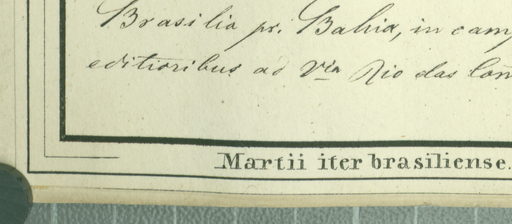 Brasilia pr. Bahia, in cam
editioribus ad Vila Rio das Con
Martii iter brasiliense.